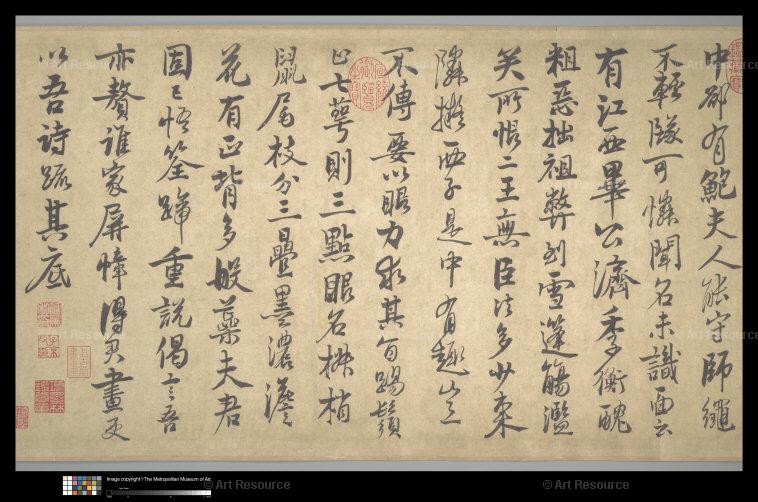 中卻有鮑夫人能守師繩
不輕隊可憐聞名未識面云
有江西畢公濟季衡醜
粗惡拙祖弊到雪蓬觴濫
矣所恨二王無臣法多少東
隣擬西子是中有趣豈
不傳要以眼力求其旨踢鬚
止七萼則三點眼名椒梢
鼠尾枝分三疊墨濃淡
花有正背多般蘂夫君
固已悟筌蹄重說偈言吾
亦贅誰家屏幛得君畫更
以吾詩疏其底
Image copyright © The Metropolitan Museum of Art
© Art Resource
© Art Resource